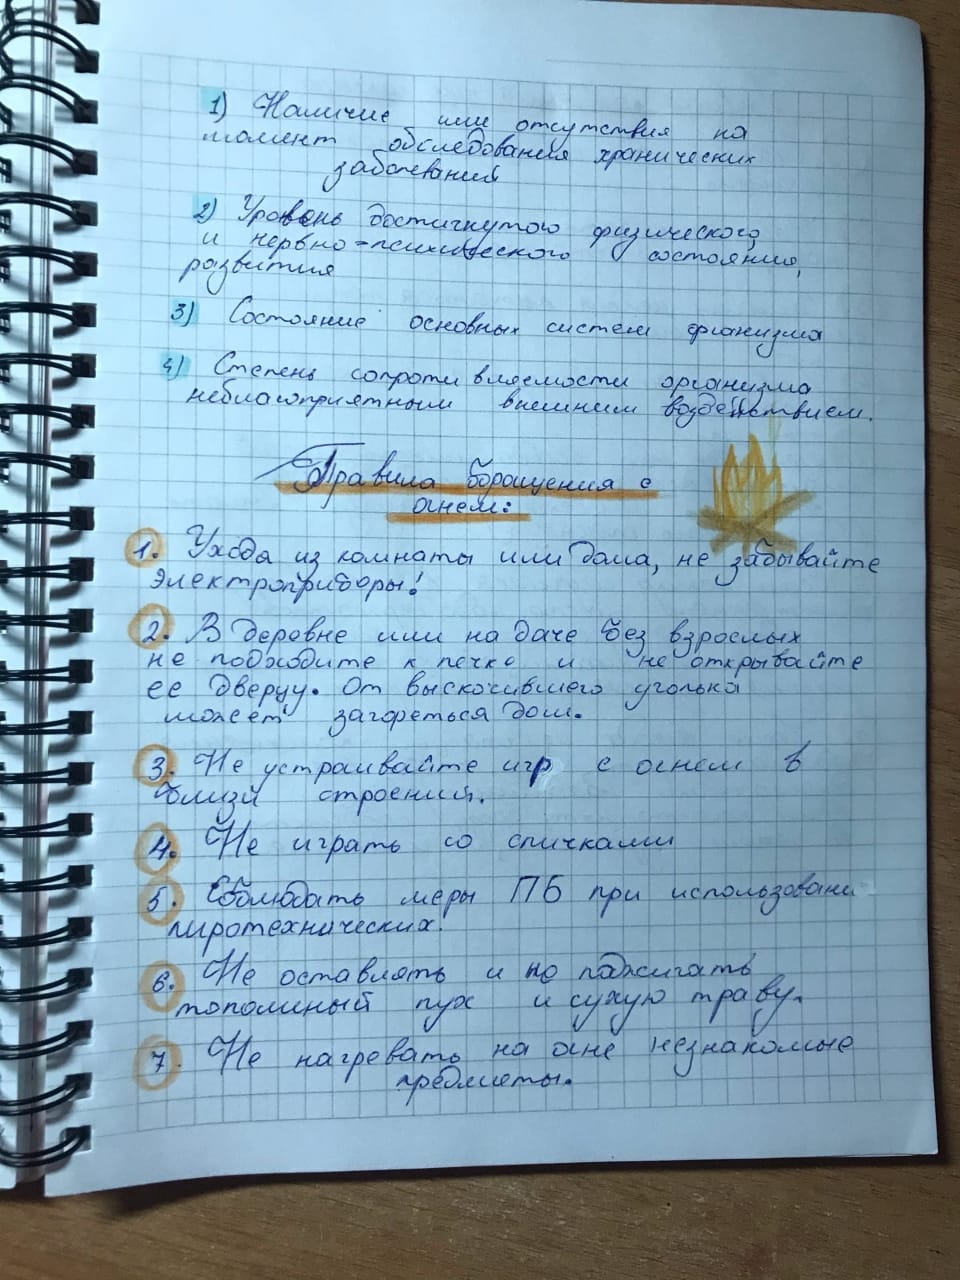 1) Наличие или отсутствия на
момент обследования хранических
заболевания
2) Уровень достигнутого физического
и нервно-психического состояния,
развития
3) Состояние основных систем организма
4) Степень сопротивляемости организма
неблагоприятным внешним воздействием.
Правила обращения с
огнем:
1. Уходя из комнаты или дома, не забывайте
электроприборы!
2. В деревне или на даче без взрослых
не подходите к печке и не открывайте
ее дверцу. От выскочившего уголька
может загореться дом.
3. Не устраивайте игр с огнем в
близи строений.
4. Не играть со спичками
5. Соблюдать меры ПБ при использовани
пиротехнических.
6. Не оставлять и не поджигать
тополиный пух и сухую траву.
7. Не нагревать на огне незнакомые
предметы.